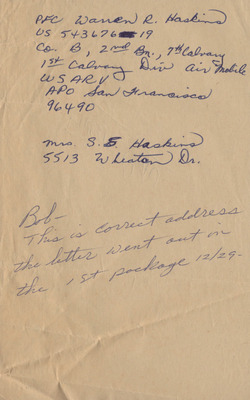 PFC Warren R. Haskins
US 543676 19
Co. B, 2nd Bn., 7th Calvary
1st Calvary Div Air Mobile
USARV
APO San Francisco
96490
Mrs S. E Haskins
5513 Wheaton Dr.
Bob-
This is correct address
the letter went out on
the 1st package 12/29.